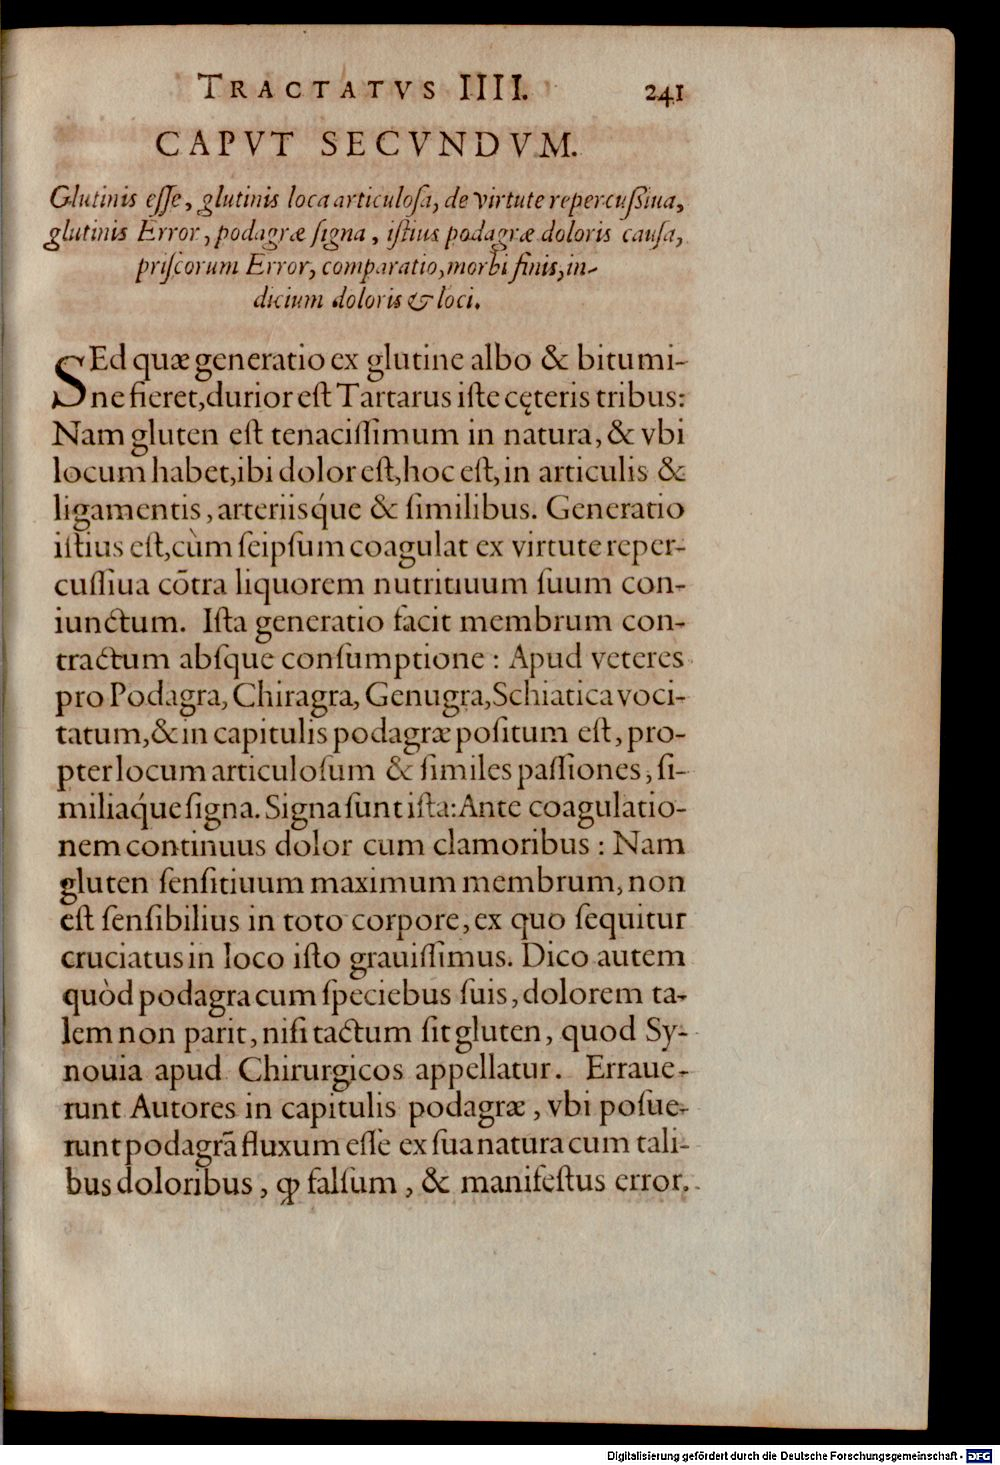 TRACTATVS IIII. 241
CAPVT SECVNDVM.
Glutinis eſſe, glutinis loca articuloſa, de virtute repercuſſiua,
glutinis Error, podagræ ſigna, iſtius podagræ doloris cauſa,
priſcorum Error, comparatio, morbi finis, in-
dicium doloris & loci.
SEd quæ generatio ex glutine albo & bitumi-
ne fieret, durior eſt Tartarus iſte cęteris tribus:
Nam gluten eſt tenaciſſimum in natura, & vbi
locum habet, ibi dolor eſt, hoc eſt, in articulis &
ligamentis, arteriisq́ue & ſimilibus. Generatio
iſtius eſt, cùm ſeipſum coagulat ex virtute reper-
cuſſiua cõtra liquorem nutritiuum ſuum con-
iunctum. Iſta generatio facit membrum con-
tractum abſque conſumptione: Apud veteres
pro Podagra, Chiragra, Genugra, Schiatica voci-
tatum, & in capitulis podagræ poſitum eſt, pro-
pter locum articuloſum & ſimiles paſſiones, ſi-
miliaq́ue ſigna. Signa ſunt iſta: Ante coagulatio-
nem continuus dolor cum clamoribus: Nam
gluten ſenſitiuum maximum membrum, non
eſt ſenſibilius in toto corpore, ex quo ſequitur
cruciatus in loco iſto grauiſſimus. Dico autem
quòd podagra cum ſpeciebus ſuis, dolorem ta-
lem non parit, niſi tactum ſit gluten, quod Sy-
nouia apud Chirurgicos appellatur. Erraue-
runt Autores in capitulis podagræ, vbi poſue-
runt podagrã fluxum eſſe ex ſua natura cum tali-
bus doloribus, ꝙ falſum, & manifeſtus error.
Digitalisierung gefördert durch die Deutsche Forschungsgemeinschaft - DFG